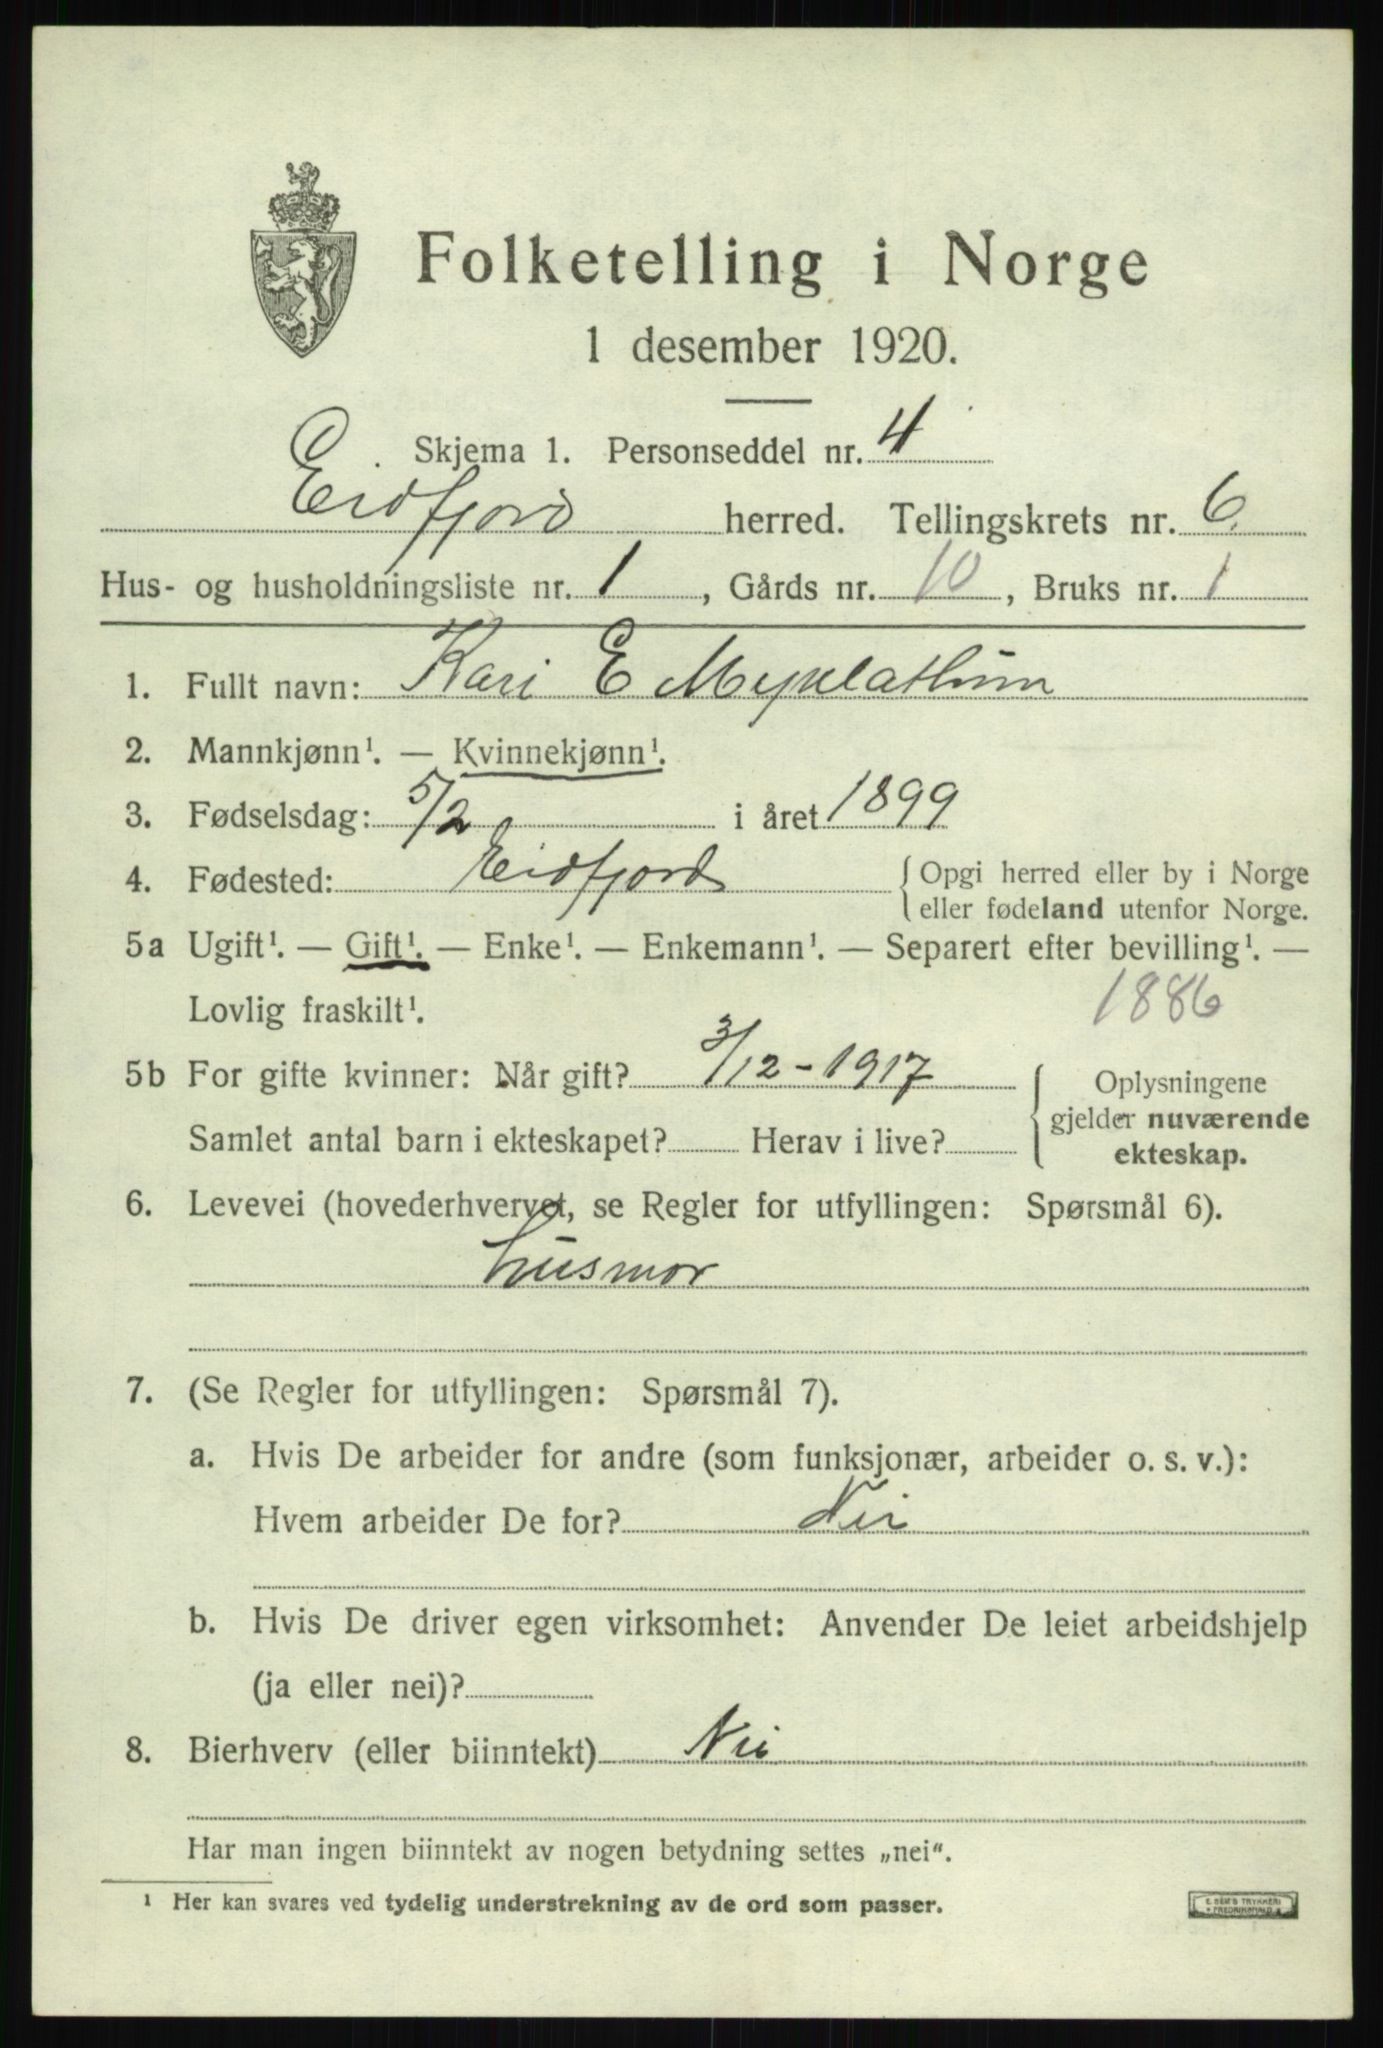 Folketelling i Norge
1 desember 1920.
Skjema 1. Personseddel nr. 4
Eidfjord herred. Tellingskrets nr. 6.
Hus- og husholdningsliste nr. 1, Gårds nr. 10, Bruks nr. 1
1. Fullt navn: Kari E Myklathun
2. Mannkjønn¹. — Kvinnekjønn¹.
3. Fødselsdag: 5/2 i året 1899
4. Fødested: Eidfjord { Opgi herred eller by i Norge
eller fødeland utenfor Norge.
5a Ugift¹. — Gift¹. — Enke¹. — Enkemann¹. — Separert efter bevilling¹. —
Lovlig fraskilt¹. 1886
5b For gifte kvinner: Når gift? 3/12-1917 { Oplysningene
gjelder nuværende
ekteskap.
Samlet antal barn i ekteskapet? Herav i live?
6. Levevei (hovederhvervet, se Regler for utfyllingen: Spørsmål 6).
husmor
7. (Se Regler for utfyllingen: Spørsmål 7).
a. Hvis De arbeider for andre (som funksjonær, arbeider o. s. v.):
Hvem arbeider De for? Nei
b. Hvis De driver egen virksomhet: Anvender De leiet arbeidshjelp
(ja eller nei)?
8. Bierhverv (eller biinntekt) Nei
Har man ingen biinntekt av nogen betydning settes „nei".
¹ Her kan svares ved tydelig understrekning av de ord som passer.
E. SEM'S TRYKKERI
FREDRIKSHALD